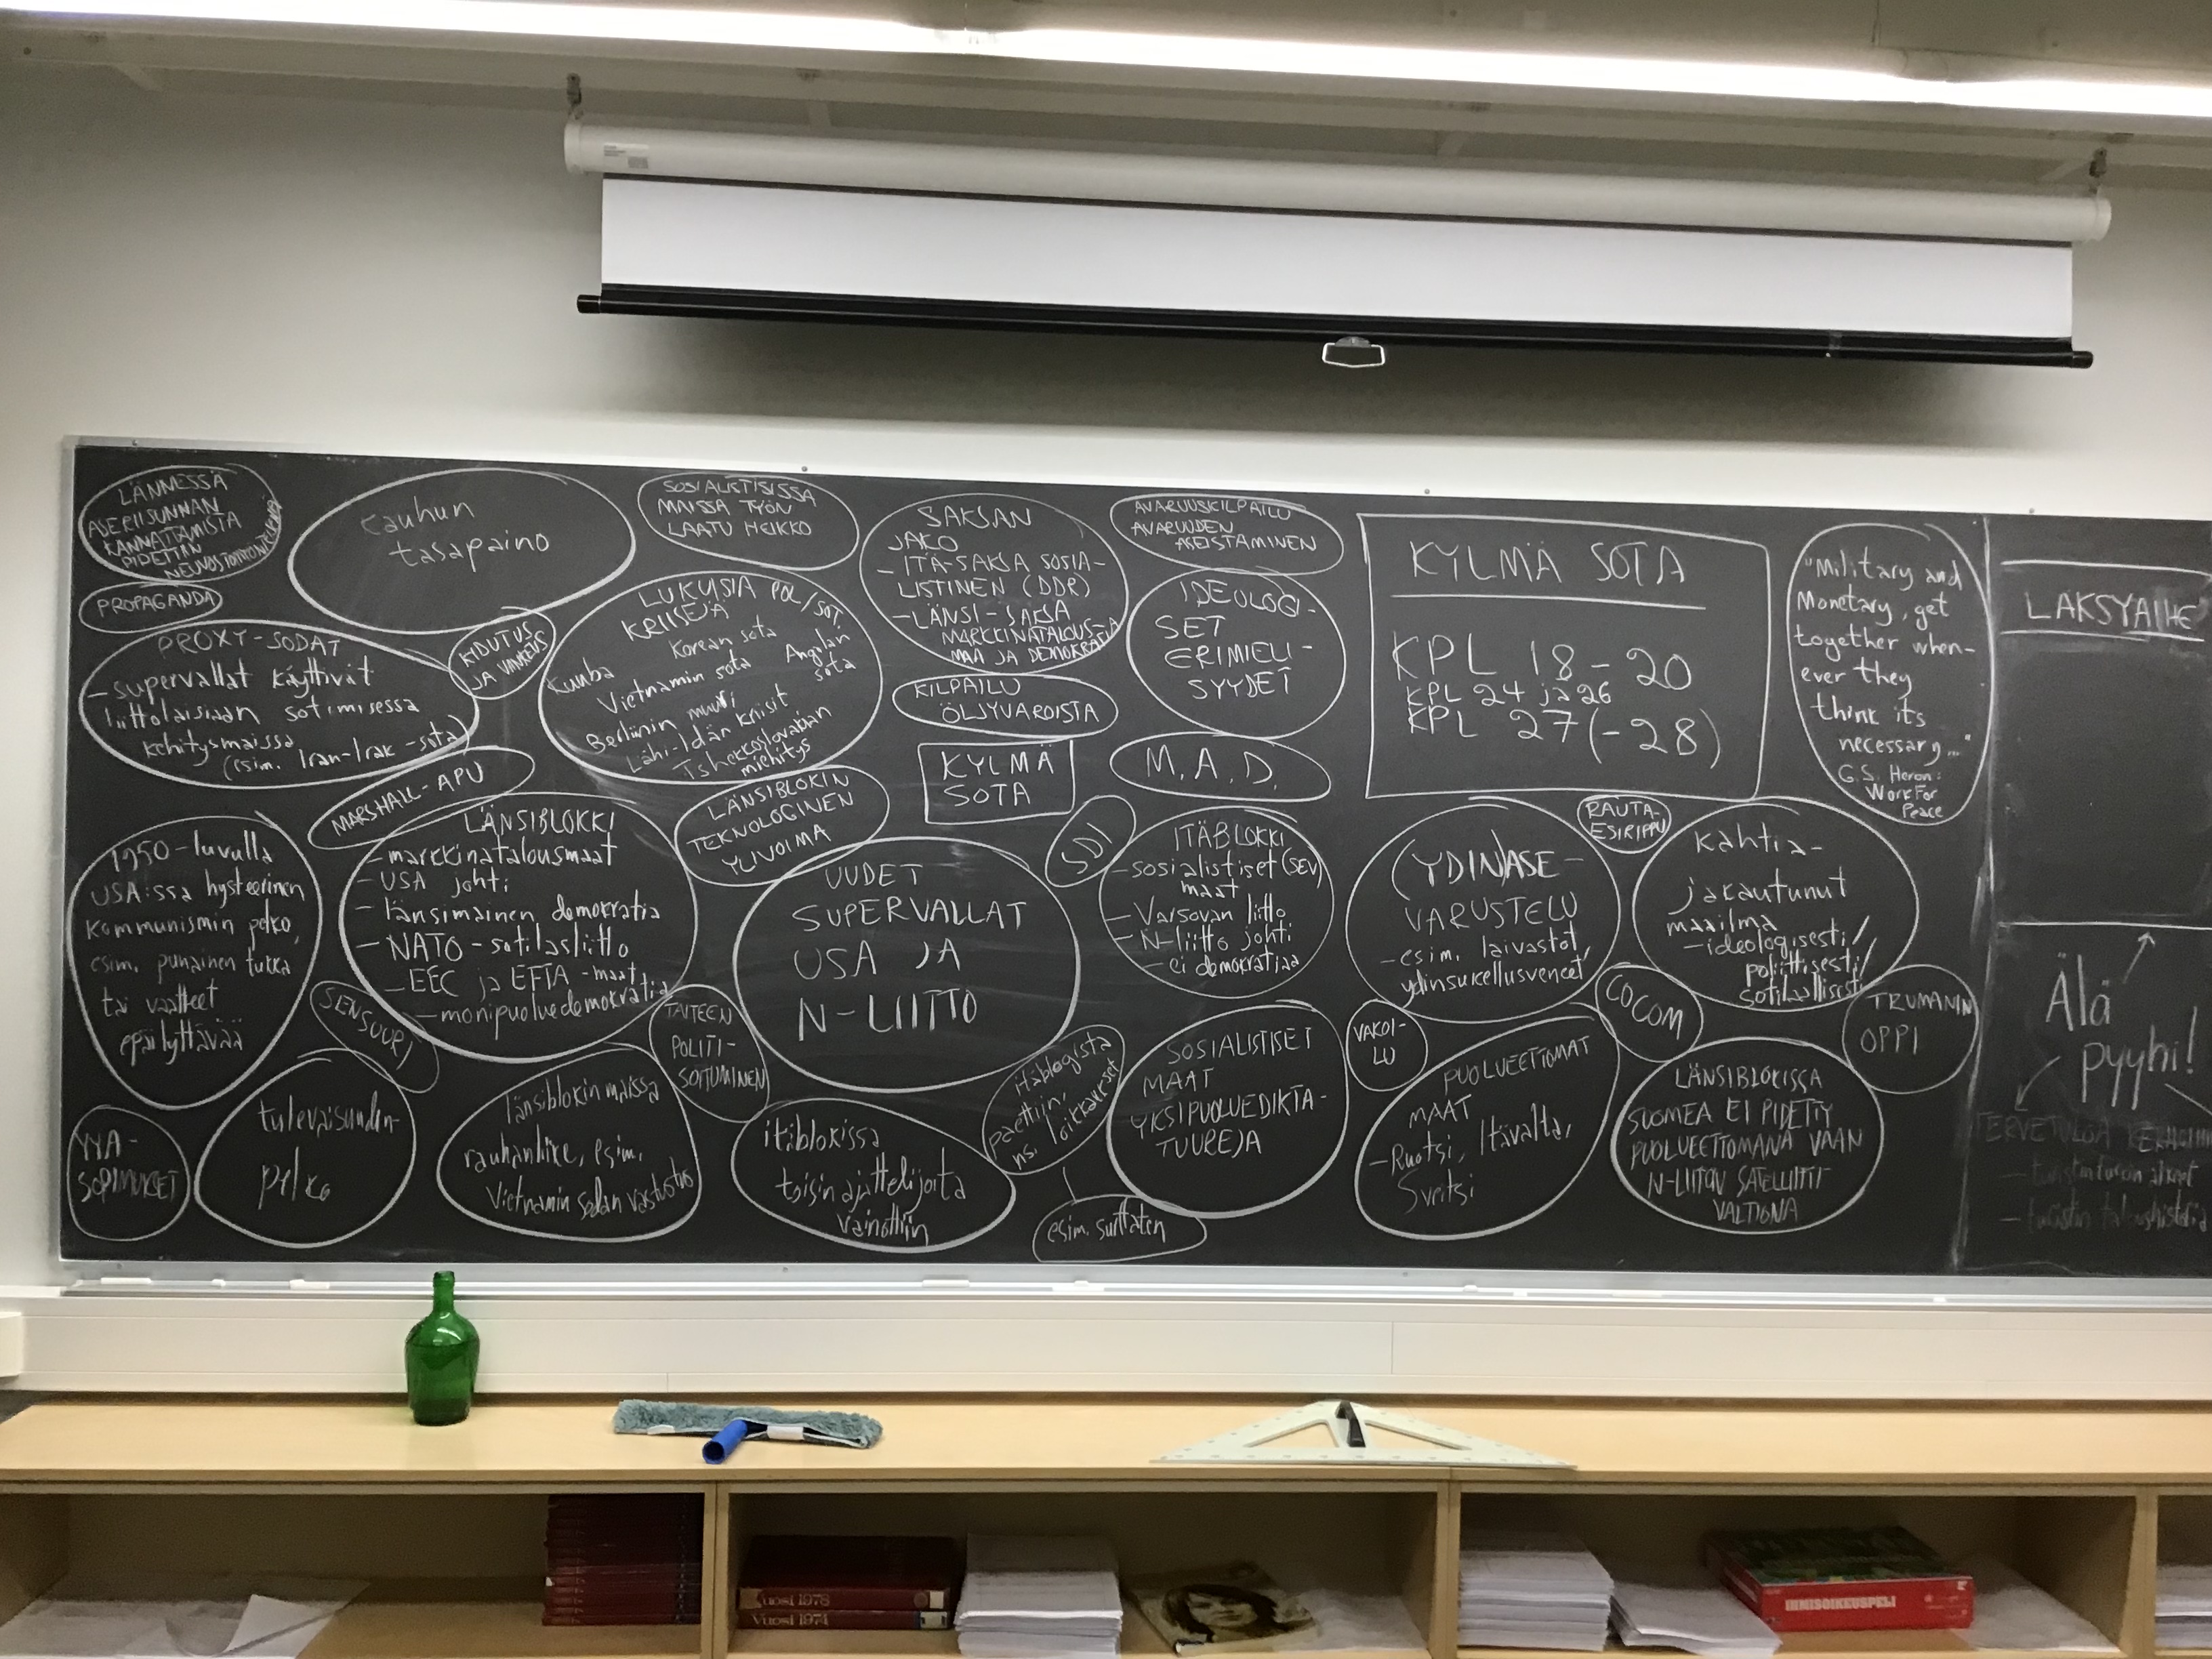 LÄNNESSÄ
ASERIISUNNAN
KANNATTAMISTA
PIDETTIIN
cauhun
tasapaino
SOSIALISTISISSA
MAISSA TYÖN
LAATU HEIKKO
SAKSAN
JAKO
- ITÄ-SAKSA SOSIA-
LISTINEN (DDR)
- LÄNSI-SAKSA
MARKKINATALOUS-
MAA JA DEMOKRATIA
AVARUUSKILPAILU
AVARUUDEN
ASEISTAMINEN
KYLMÄ SOTA
KPL 18-20
KPL 24 ja 26
KPL 27 (-28)
"Military and
Monetary, get
together when-
ever they
think its
necessary..."
G.S. Heron:
Work For
Peace
LÄKSYAIHE
PROPAGANDA
PROXY-SODAT
- supervallat käyttivät
liittolaisiaan sotimisessa
kehitysmaissa
(esim. Iran-Irak -sota)
KIDUTUS
JA VANKEUS
LUKUISIA POL/SOT.
KRIISEJÄ
Korean sota
Kuuba
Vietnamin sota
Angolan
sota
Berliinin muuri
Lähi-Idän kriisit
Tshekkoslovakian
miehitys
IDEOLOGI-
SET
ERIMIELI-
SYYDET
KILPAILU
ÖLJYVAROISTA
KYLMÄ
SOTA
M.A.D.
MARSHALL-APU
LÄNSIBLOKIN
TEKNOLOGINEN
YLIVOIMA
SDI
RAUTA-
ESIRIPPU
1950-luvulla
USA:ssa hysteerinen
kommunismin pelko,
esim. punainen tukka
tai vaatteet
epäilyttävää
LÄNSIBLOKKI
- markkinatalousmaat
- USA johti
- länsimainen demokratia
- NATO - sotilasliitto
- EEC ja EFTA -maat
- monipuoluedemokratia
UUDET
SUPERVALLAT
USA JA
N-LIITTO
ITÄBLOKKI
- sosialistiset (SEV)
maat
- Varsovan liitto
- N-liitto johti
- ei demokratiaa
(YDIN)ASE-
VARUSTELU
- esim. laivastot,
ydinsukellusveneet
kahtia-
jakautunut
maailma
- ideologisesti/
poliittisesti/
sotilaallisesti
SENSUURI
TAITEEN
POLITI-
SOITUMINEN
COCOM
TRUMANIN
OPPI
Älä
pyyhi!
VAKOI-
LU
YYA-
SOPIMUKSET
tulevaisuuden-
pelko
länsiblokin maissa
rauhanliike, esim.
Vietnamin sodan vastustus
itäblokissa
toisinajattelijoita
vainottiin
itäblogista
paettiin,
ns. loikkaukset
esim. surffaten
SOSIALISTISET
MAAT
YKSIPUOLUEDIKTA-
TUUREJA
PUOLUEETTOMAT
MAAT
- Ruotsi, Itävalta,
Sveitsi
LÄNSIBLOKISSA
SUOMEA EI PIDETTY
PUOLUEETTOMANA VAAN
N-LIITON SATELLIITTI
VALTIONA
TERVETULOA
Vuosi 1978
Vuosi 1974
IHMISOIKEUSPELI